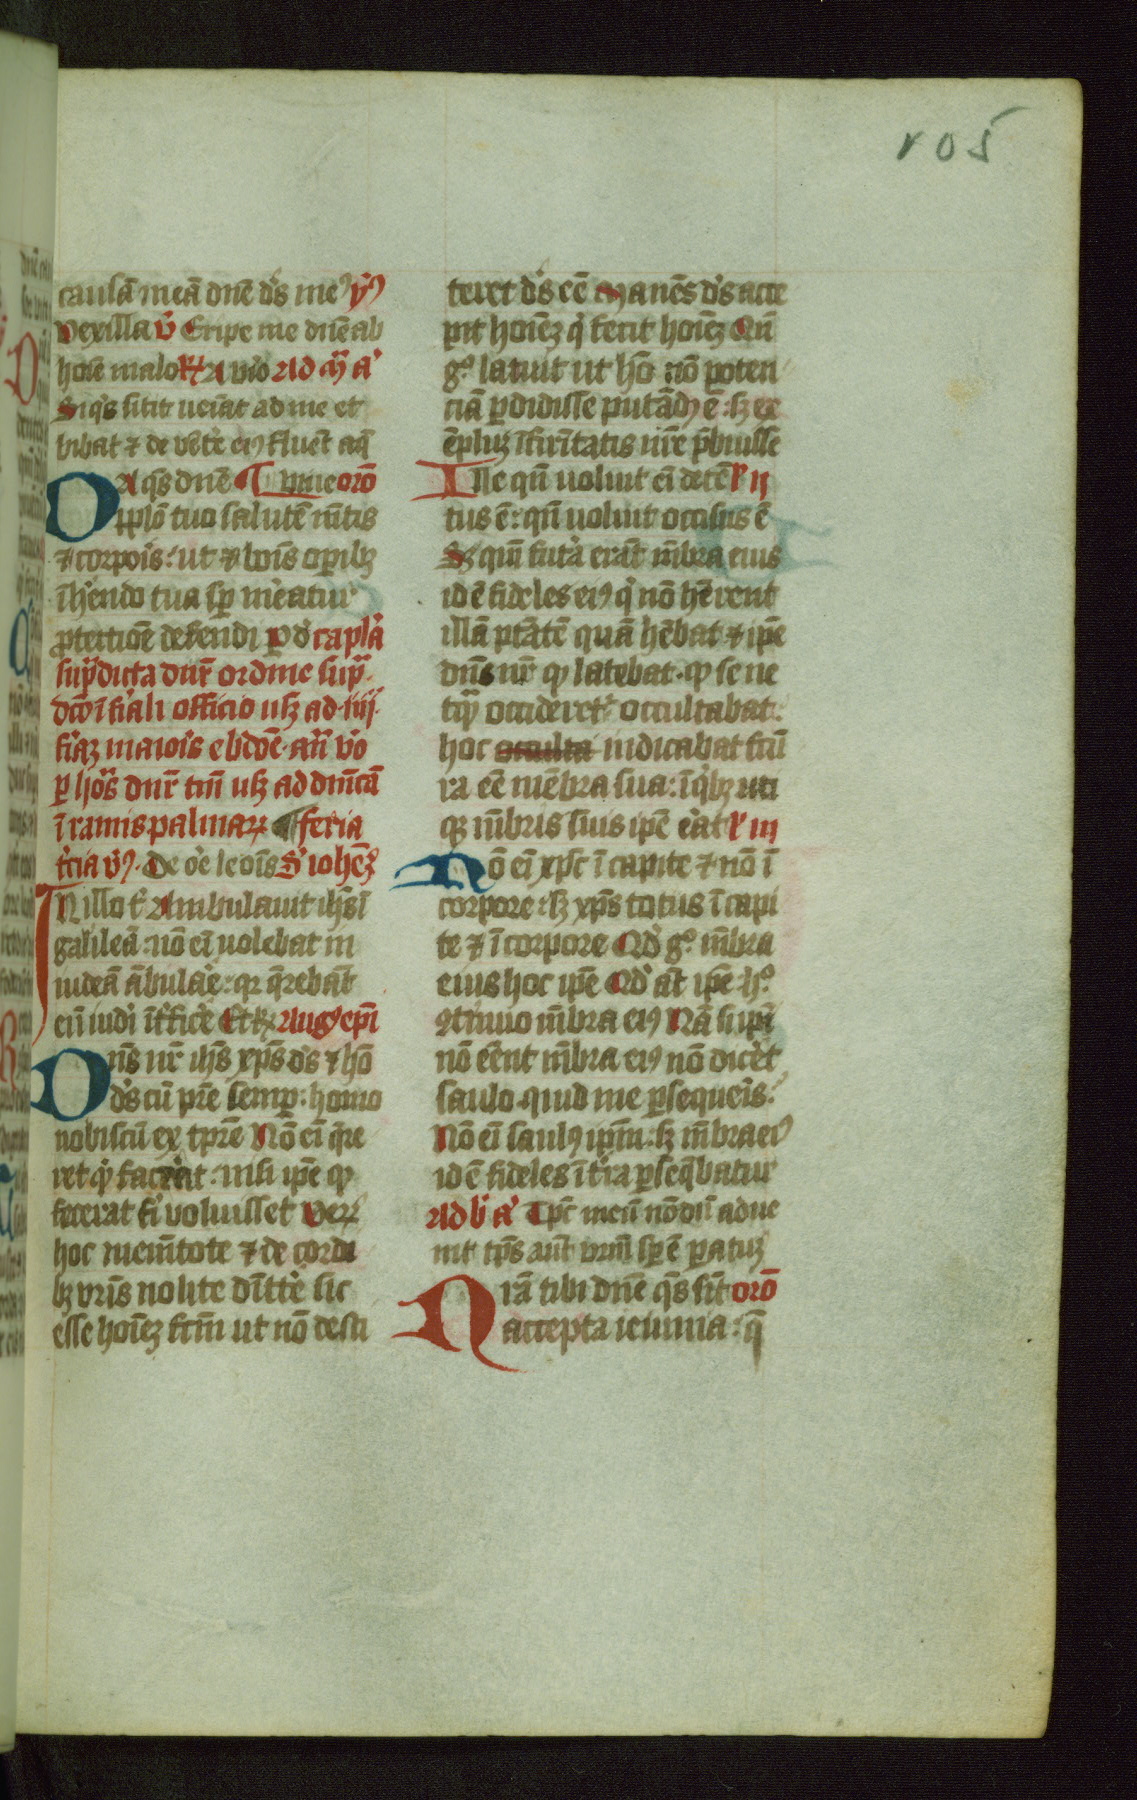 105
causā meā dnē ds me⁹ ẏ⁹
Vexilla v̇ Eripe me dnē ab
hoīe malo A viro Ad m̄ a᷎
Siqs sitit veniat ad me et
bibat ⁊ de vētre ei⁹ fluēt aq̄
Da qs dnē ¶ vnīe orō
pplō tuo salutē mētis
⁊ corpois: ut ⁊ bonis opibꝫ
īhēndo tua sp mēatur
ꝓtectiōe defendi Pd capla
sup̄dicta dnr̄ ordine sup̄
dc̄o ī fiali officio usꝫ ad iiij
fiaꝫ maiois ebdōe ań vo
p hos dnr̄ tm̄ usꝫ ad dn̄icā
ī ramis palmaꝝ ¶ feria
t̄cia v⁹. De ōe leōis S iohēꝫ
IN illo t̄ Ambulauit ihs ī
galileā: nō eī volebat in
iudeā ābulae: qr q̄rebāt
eū iudi īt̄fice Et Aug⁹ ep̄i
Dn̄s nr̄ ihs xp̄s ds ⁊ hō
ds cū pr̄e semp: homo
nobiscū ex tpr̄e Nō eī q̄re
ret q̄ facerat: nisi ip̄e q
fecerat fi voluisset Veꝝ
hoc mem̄tote ⁊ de cordi
bꝫ vr̄is nolite dītte sic
esse hoīeꝫ fctm̄ ut nō desti
teret ds eē Manēs ds acce
pit hoīeꝫ q fecit hoīeꝫ Qn̄
gº latuit ut hō nō poten
ciā pdidisse putād⁹ ē: sꝫ ex
ēpluꝫ īfirītatis nr̄e p̄buisse
Ille qn̄ voluit eī detē R ii
tus ē: qn̄ voluit occisus ē
Sꝫ qm̄ futa erāt m̄bra eius
id ē fideles ei⁹ q nō hērent
illā ptātē quā hēbat ⁊ ip̄e
dn̄s nr̄ q latebat. q se ne
tq occideret occultabat:
hoc occulta indicabat futū
ra eē mēbra sua: ī qbꝫ uti
qꝫ m̄bris suis ip̄e eāt R iii
Nō eī xp̄c ī capite ⁊ nō ī
corpore: sꝫ xp̄s totus ī capi
te ⁊ ī corpore Qd gº m̄bra
eius hoc ip̄e Qd āt ip̄e hº
ꝯtinuo m̄bra ei⁹ Nā si ip̄i
nō eēnt m̄bra ei⁹ nō dicēt
saulo quid me psequeis:
Nō eī saul⁹ ip̄m: sꝫ m̄bra ei⁹
id ē fideles ī t̄ra pseq̄batur
Ad b̄ a᷎ Tp̄c meū nōdū adue
nit tp̄s aūt vr̄m sp ē patuꝫ
NRā tibi dnē qs sīt orō
accepta ieiunia: q̄